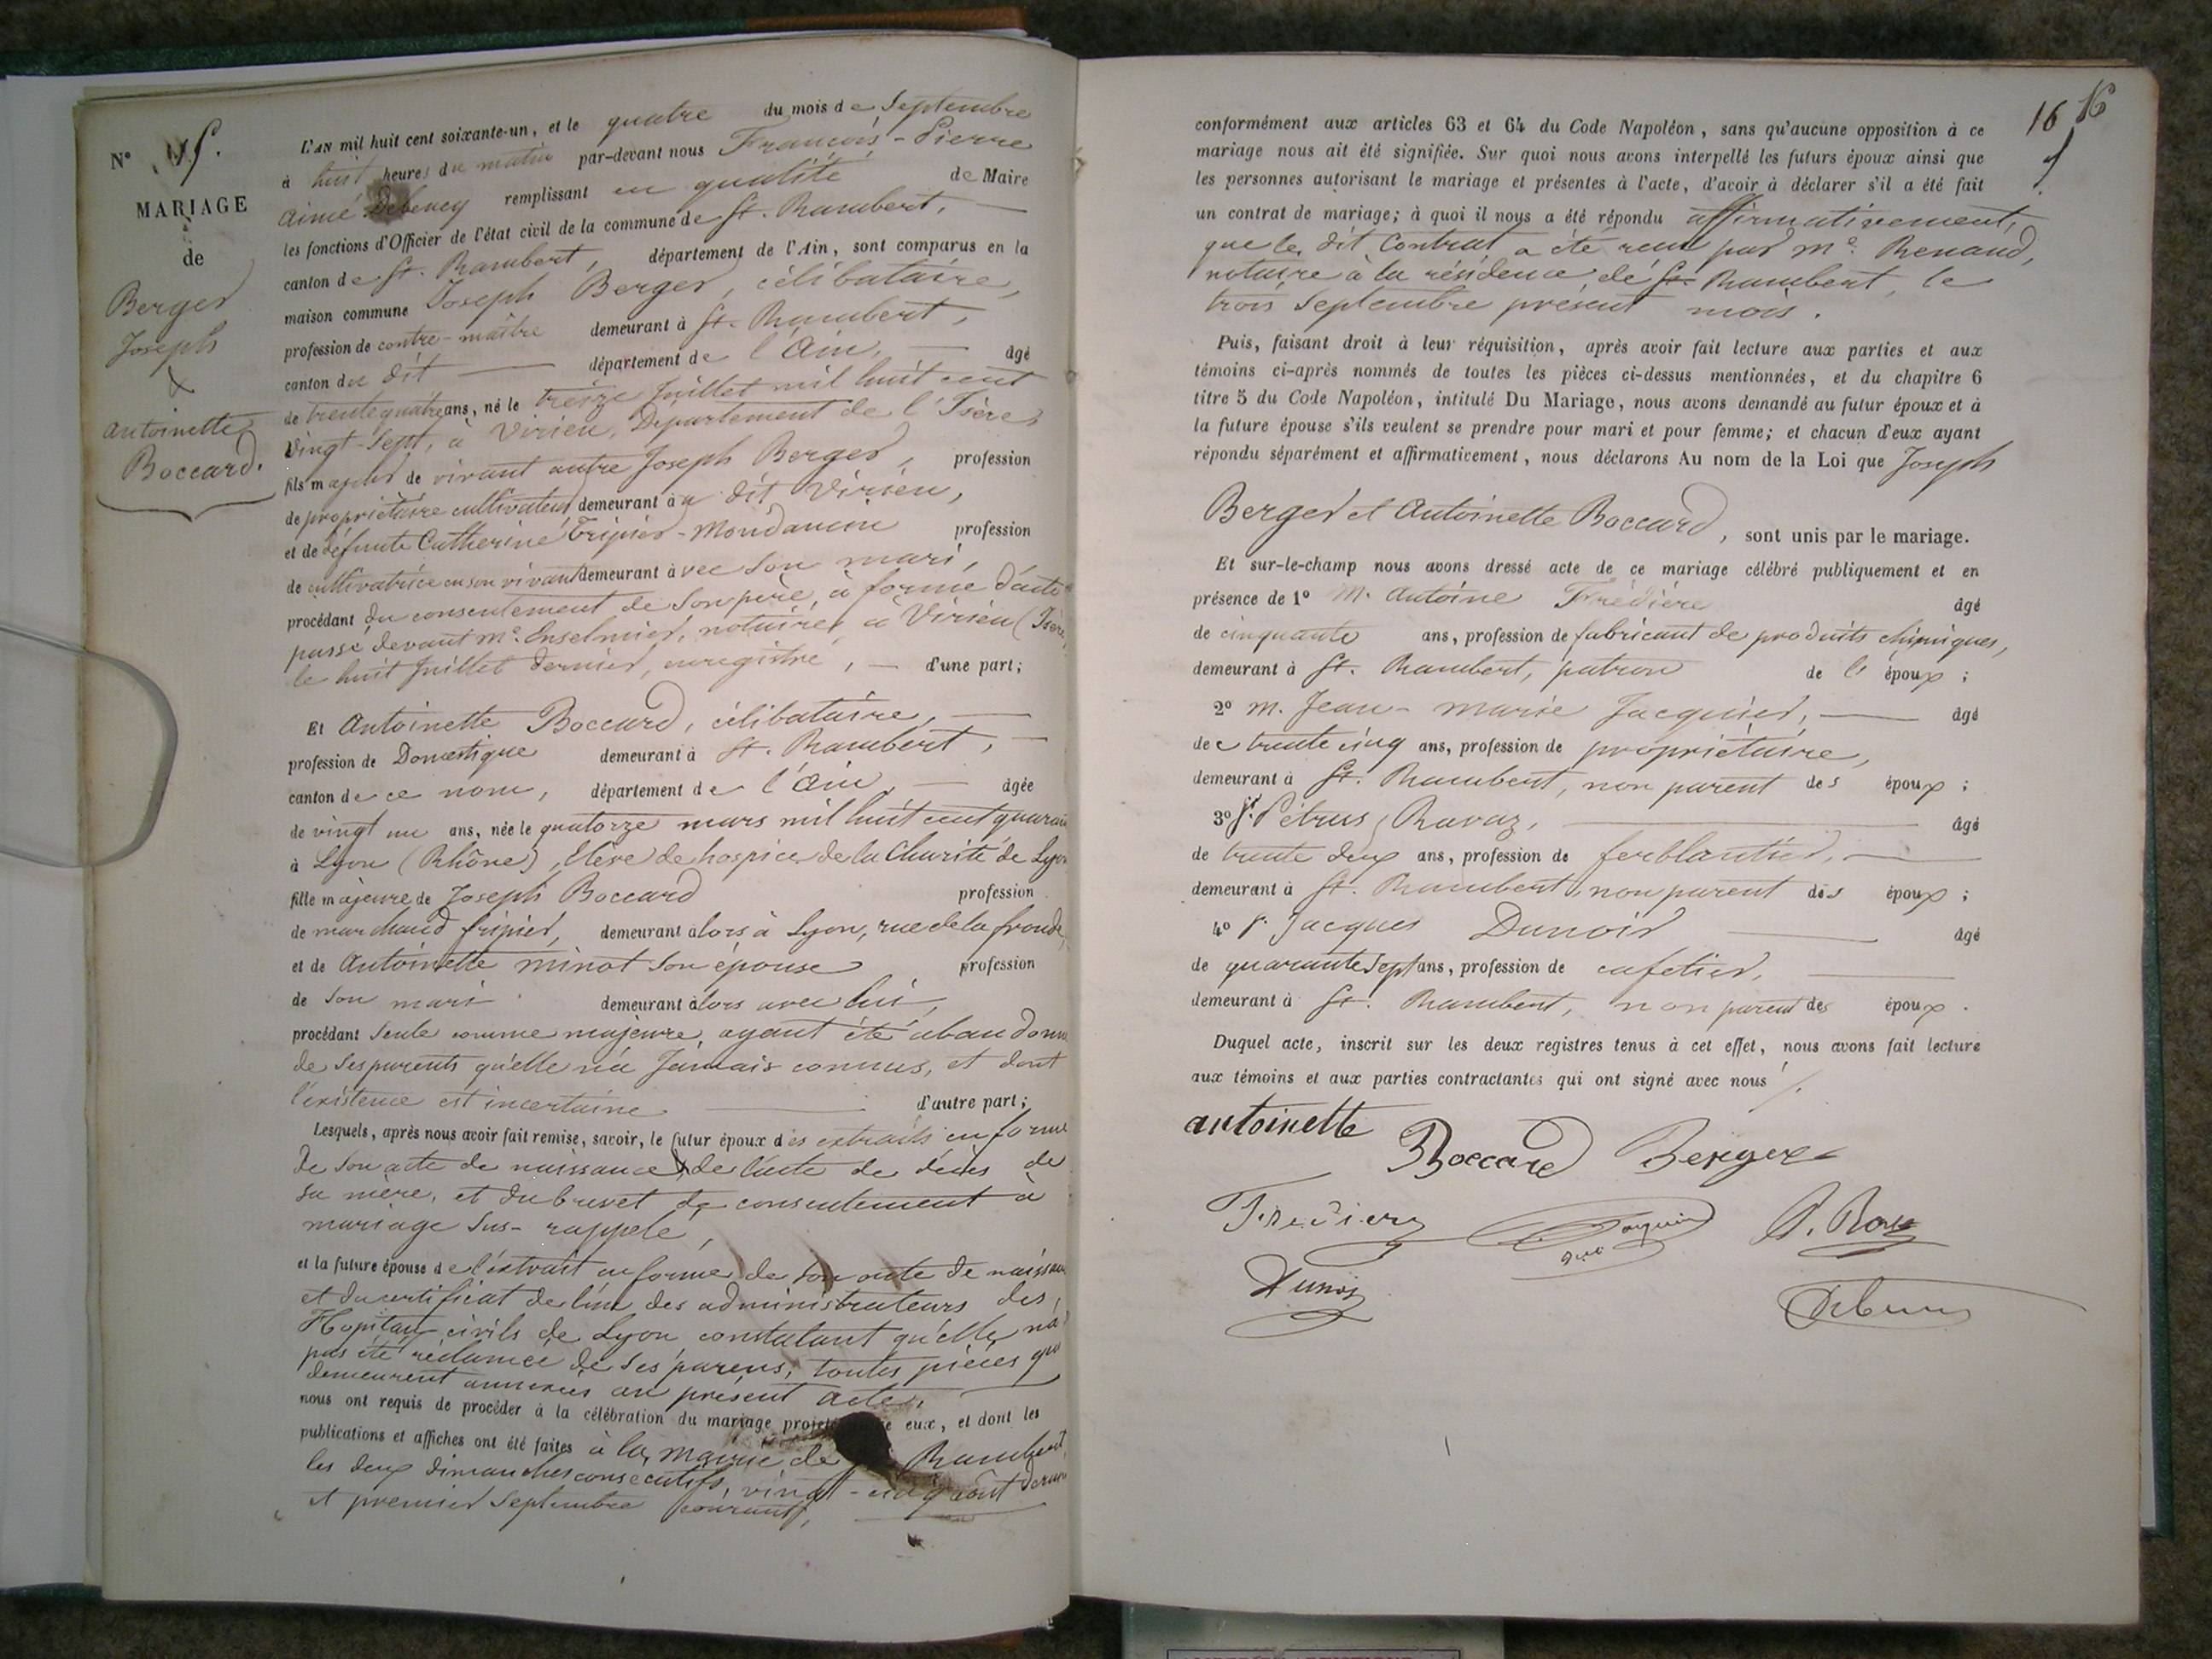 N° 15.
MARIAGE
de
Berger
Joseph
&
Antoinette
Boccard.
L'AN mil huit cent soixante-un, et le quatre du mois de Septembre
à huit heures du matin par-devant nous François-Pierre
Aimé Debeney remplissant en qualité de Maire
les fonctions d'Officier de l'état civil de la commune de St. Rambert,
canton de St. Rambert, département de l'Ain, sont comparus en la
maison commune Joseph Berger, célibataire,
profession de contre-maître demeurant à St. Rambert,
canton du dit département de l'Ain, âgé
de trente quatre ans, né le treize Juillet mil huit cent
vingt-sept, à Virieu, Département de l'Isère,
fils majeur de vivant autre Joseph Berger, profession
de propriétaire cultivateur demeurant au dit Virieu,
et de défunte Catherine Tripier-Mondancin profession
de cultivatrice en son vivant demeurant avec son mari,
procédant du consentement de son père, à forme d'acte
passé devant Me. Enselmier, notaire, à Virieu (Isère)
le huit Juillet dernier, enregistré, d'une part;
Et Antoinette Boccard, célibataire,
profession de Domestique demeurant à St. Rambert,
canton de ce nom, département de l'Ain, âgée
de vingt un ans, née le quatorze mars mil huit cent quaran
à Lyon (Rhône), Elève de hospice de la Charité de Lyon
fille majeure de Joseph Boccard profession
de marchand fripier, demeurant alors à Lyon, rue de la fronde,
et de Antoinette minot son épouse profession
de son mari demeurant alors avec lui,
procédant seule comme majeure, ayant été abandonn
de ses parents qu'elle n'a Jamais connus, et dont
l'existence est incertaine d'autre part;
Lesquels, après nous avoir fait remise, savoir, le futur époux des extraits en forme
de son acte de naissance, de l'acte de décès de
sa mère, et du brevet de consentement à
mariage sus-rappelé,
et la future épouse de l'extrait en forme de son acte de naissan
et du certificat de l'un des administrateurs des
Hopitaux civils de Lyon constatant qu'elle n'a
pas été réclamée de ses parens; toutes pièces qui
demeurent annexées au présent acte,
nous ont requis de procéder à la célébration du mariage projeté eux, et dont les
publications et affiches ont été faites à la mairie de Rambert,
les deux dimanches consécutifs, vingt-cinq août dernier
et premier Septembre courant,
16 16
conformément aux articles 63 et 64 du Code Napoléon, sans qu'aucune opposition à ce
mariage nous ait été signifiée. Sur quoi nous avons interpellé les futurs époux ainsi que
les personnes autorisant le mariage et présentes à l'acte, d'avoir à déclarer s'il a été fait
un contrat de mariage; à quoi il nous a été répondu affirmativement,
que le dit Contrat a été reçu par Me. Renaud,
notaire à la résidence de St. Rambert, le
trois Septembre présent mois.
Puis, faisant droit à leur réquisition, après avoir fait lecture aux parties et aux
témoins ci-après nommés de toutes les pièces ci-dessus mentionnées, et du chapitre 6
titre 5 du Code Napoléon, intitulé Du Mariage, nous avons demandé au futur époux et à
la future épouse s'ils veulent se prendre pour mari et pour femme; et chacun d'eux ayant
répondu séparément et affirmativement, nous déclarons Au nom de la Loi que Joseph
Berger et Antoinette Boccard, sont unis par le mariage.
Et sur-le-champ nous avons dressé acte de ce mariage célébré publiquement et en
présence de 1° M. Antoine Frédière âgé
de cinquante ans, profession de fabricant de produits chimiques,
demeurant à St. Rambert, patron de l'époux;
2° M. Jean-marie Jacquier, âgé
de trente cinq ans, profession de propriétaire,
demeurant à St. Rambert, non parent des époux;
3° Sr. Pétrus Ravaz, âgé
de trente deux ans, profession de ferblantier,
demeurant à St. Rambert, non parent des époux;
4° Sr. Jacques Dunoir âgé
de quarante sept ans, profession de cafetier,
demeurant à St. Rambert, non parent des époux.
Duquel acte, inscrit sur les deux registres tenus à cet effet, nous avons fait lecture
aux témoins et aux parties contractantes qui ont signé avec nous.
antoinette
Boccard Berger
Frediere Jacquier
Dunoir